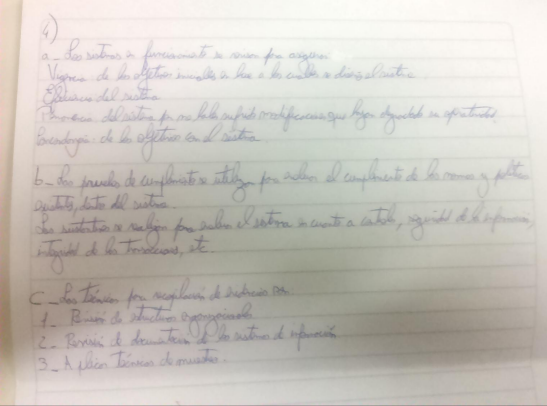 4)
a- Los sistemas en funcionamiento se revisan para asegurar:
Vigencia de los objetivos iniciales en base a los cuales se diseñó el sistema.
Eficiencia del sistema
del sistema no haya sufrido modificaciones que hayan degradado su operatividad
de los objetivos con el sistema.
b- Las pruebas de cumplimiento se utilizan para evaluar el cumplimiento de las normas y políticas
dentro del sistema.
Las sustantivas se realizan para evaluar el sistema en cuanto a controles, seguridad de la información,
integridad de las transacciones, etc.
C- Las técnicas para recopilación de evidencias son
1- Revisión de estructuras organizacionales
2- Revisión de documentación de los sistemas de información
3- Aplicar técnicas de muestreo.